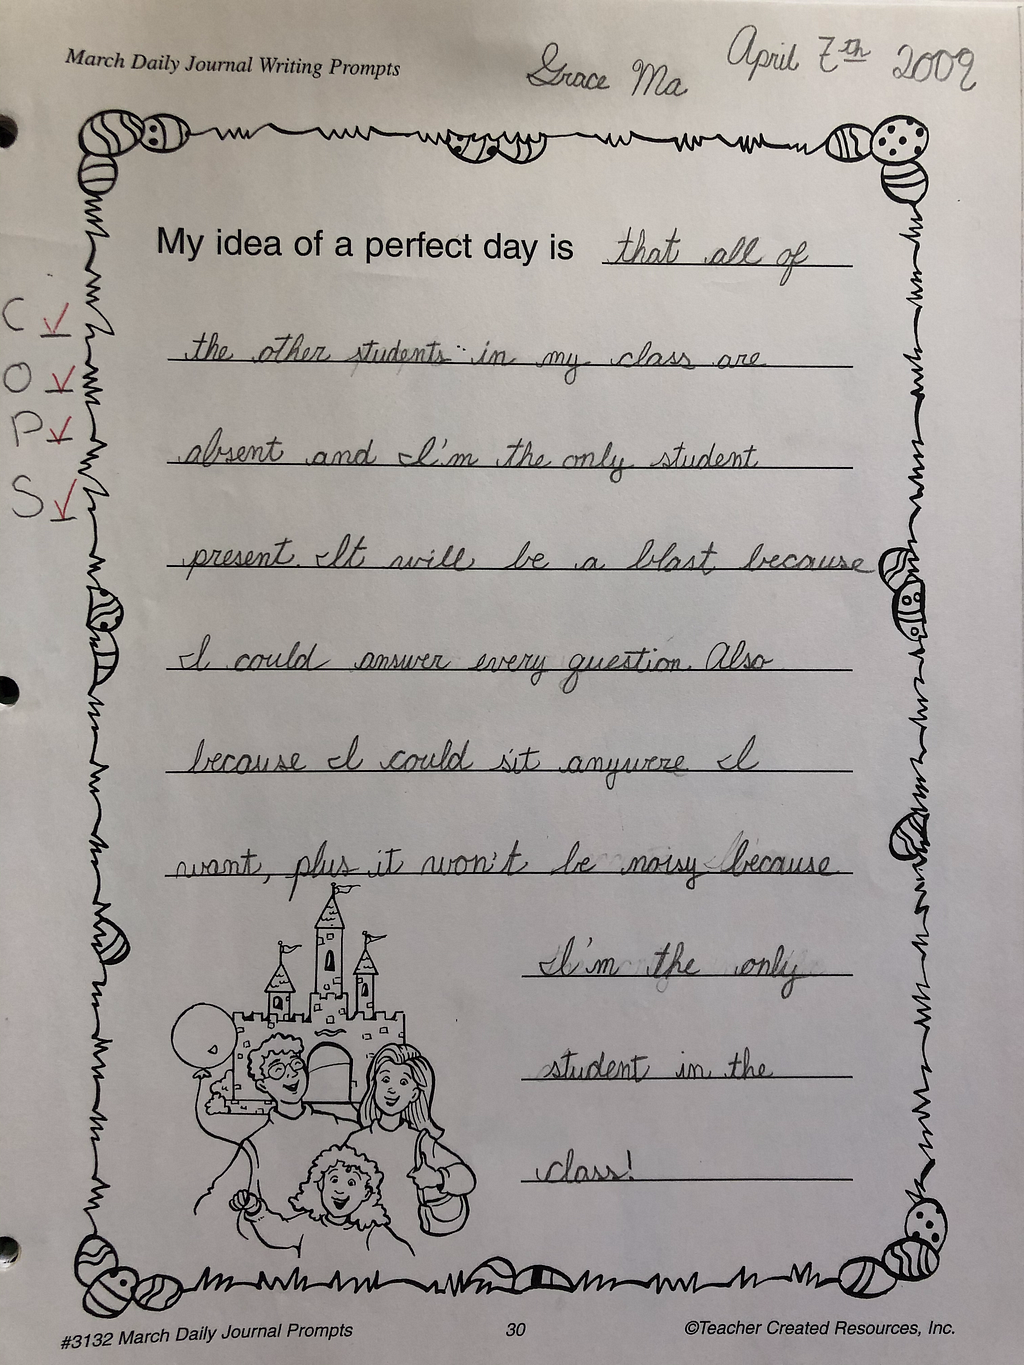 March Daily Journal Writing Prompts
Grace Ma April 7th 2009
My idea of a perfect day is that all of
the other students in my class are
C
O
P
S
absent and I'm the only student
present. It will be a blast because
I could answer every question. Also
because I could sit anywere I
want, plus it won't be noisy because
I'm the only
student in the
class!
#3132 March Daily Journal Prompts 30 ©Teacher Created Resources, Inc.